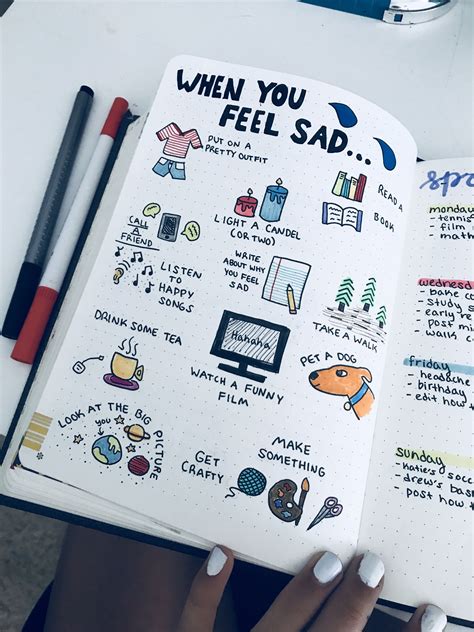 WHEN YOU
FEEL SAD...
PUT ON A
PRETTY OUTFIT
LIGHT A CANDEL
(OR TWO)
READ A
BOOK
CALL
A
FRIEND
LISTEN
TO
HAPPY
SONGS
WRITE
ABOUT WHY
YOU FEEL
SAD
TAKE A WALK
DRINK SOME TEA
Hahaha
WATCH A FUNNY
FILM
PET A DOG
LOOK AT THE BIG
PICTURE
you
GET
CRAFTY
MAKE
SOMETHING
monday
- tennis
- film
- math
wednesd
- bake c
- study s
- early re
- post m
- watch
friday
- headache
- birthday
- edit how t
sunday
- katie's socc
- drew's bas
- post how t